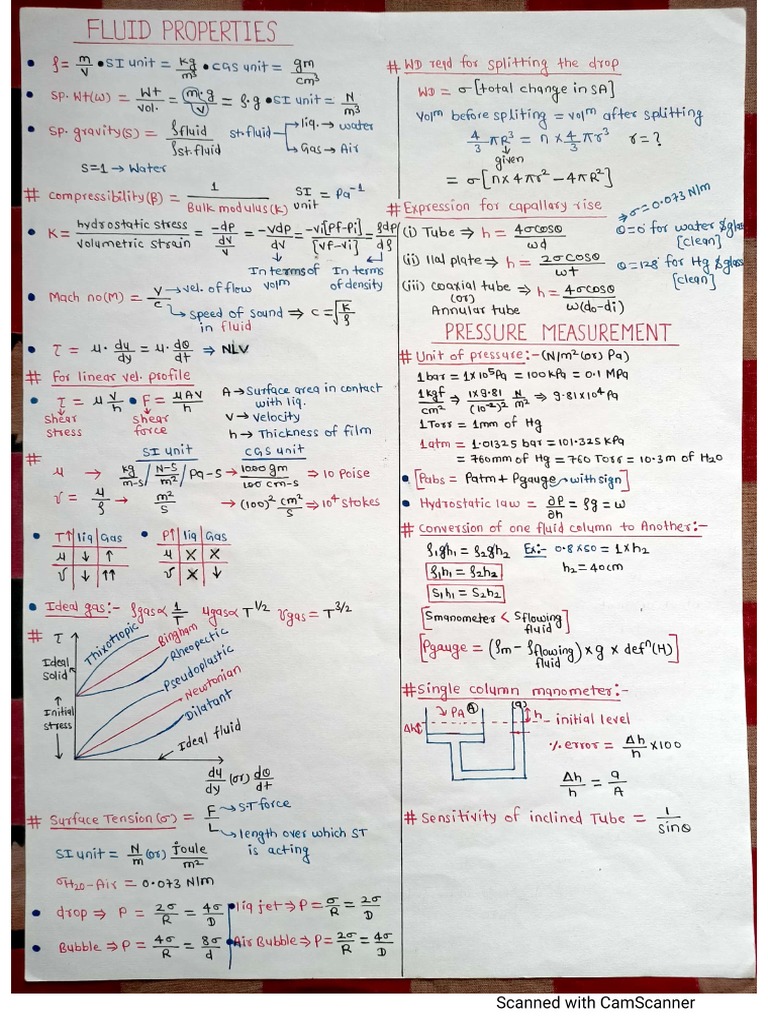 FLUID PROPERTIES
• ρ = m/v • SI unit = kg/m³ • CGS unit = gm/cm³
• Sp. Wt(w) = Wt/vol. = m·g/V = ρ·g • SI unit = N/m³
• Sp. gravity(s) = ρfluid/ρst.fluid st.fluid → liq. → water
→ Gas → Air
S=1 → Water
# Compressibility(β) = 1/Bulk modulus(K) SI unit = Pa⁻¹
• K = hydrostatic stress/volumetric strain = -dp/(dv/v) = -vdp/dv = -vi[Pf-Pi]/[vf-vi] = ρdp/dρ
In terms of volm In terms of density
• Mach no(M) = V/c → vel. of flow
→ speed of sound in fluid ⇒ c = √(K/ρ)
• τ = μ· du/dy = μ· dθ/dt ⇒ NLV
# for linear vel. profile
• τ = μ V/h • F = μAV/h
shear stress shear force
A → Surface area in contact with liq.
V → Velocity
h → Thickness of film
# SI unit CGS unit
μ → kg/m-s / N-S/m² / Pa-S → 1000 gm/100 cm-s → 10 Poise
ν = μ/ρ → m²/s → (100)² cm²/s → 10⁴ stokes
• T↑ liq Gas
μ ↓ ↑
ν ↓ ↑↑
• P↑ liq Gas
μ X X
ν X ↓
• Ideal gas:- ρgas∝ 1/T μgas∝ T^1/2 νgas = T^3/2
# τ
Thixotropic
Bingham
Rheopectic
Pseudoplastic
Newtonian
Dilatant
Ideal fluid
Ideal solid
Initial stress
du/dy (or) dθ/dt
# Surface Tension(σ) = F/L → S.T force
→ length over which ST is acting
SI unit = N/m (or) joule/m²
σH2O-Air = 0.073 N/m
• drop ⇒ P = 2σ/R = 4σ/D
• Bubble ⇒ P = 4σ/R = 8σ/d
• liq jet ⇒ P = σ/R = 2σ/D
• Air Bubble ⇒ P = 2σ/R = 4σ/D
# WD reqd for splitting the drop
WD = σ[total change in SA]
Volm before spliting = volm after splitting
4/3 πR³ = n × 4/3 πr³ r = ?
given
= σ[n×4πr² - 4πR²]
# Expression for capallary rise
→ σ = 0.073 N/m
(i) Tube ⇒ h = 4σcosθ/wd
θ=0° for water & glass [clean]
(ii) llal plate ⇒ h = 2σcosθ/wt
θ=128° for Hg & glass [clean]
(iii) coaxial tube (or) Annular tube ⇒ h = 4σcosθ/w(do-di)
PRESSURE MEASUREMENT
# Unit of pressure:- (N/m² (or) Pa)
1 bar = 1×10⁵Pa = 100 KPa = 0.1 MPa
1 kgf/cm² ⇒ 1×9.81/(10⁻²)² N/m² ⇒ 9.81×10⁴ Pa
1 Torr = 1mm of Hg
1 atm = 1.01325 bar = 101.325 KPa
= 760mm of Hg = 760 Torr = 10.3m of H2O
• [Pabs = Patm + Pgauge → with sign]
• Hydrostatic law = ∂P/∂h = ρg = w
# Conversion of one fluid column to Another:-
ρ1gh1 = ρ2gh2 Ex:- 0.8×50 = 1×h2
ρ1h1 = ρ2h2 h2 = 40cm
S1h1 = S2h2
[Smanometer < Sflowing fluid]
[Pgauge = (ρm - ρflowing fluid) × g × defⁿ(H)]
# Single column manometer:-
PA (A) (a)
Δh h – initial level
% error = Δh/h ×100
Δh/h = a/A
# Sensitivity of inclined Tube = 1/sinθ
Scanned with CamScanner